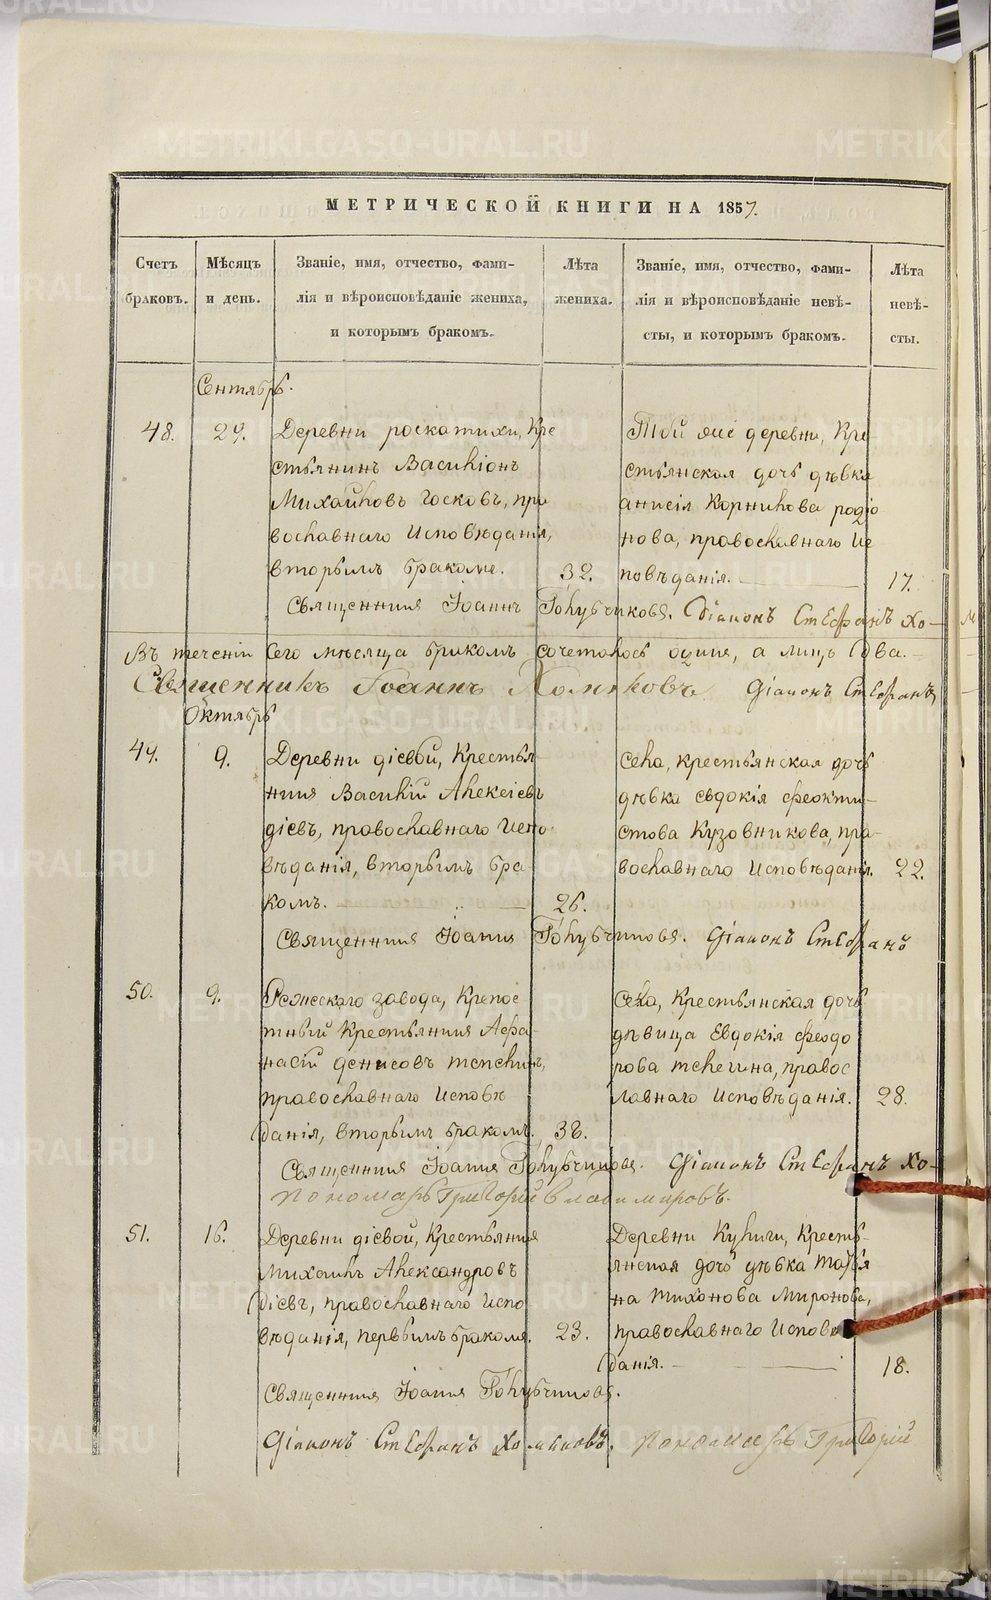 МЕТРИЧЕСКОЙ КНИГИ НА 1857.
Счетъ браковъ.
Мѣсяцъ и день.
Званіе, имя, отчество, фами-
лія и вѣроисповѣданіе жениха,
и которымъ бракомъ.
Лѣта жениха.
Званіе, имя, отчество, фами-
лія и вѣроисповѣданіе невѣ-
сты, и которымъ бракомъ.
Лѣта невѣ-
сты.
Сентябрь.
48.
29.
Деревни роскатихи, Кре
стьянинъ Василіонъ
Михайловъ Госковъ, пра
вославнаго Исповѣданія,
вторымъ бракомъ.
32.
Той же деревни, Кре
стьянская дочь дѣвка
анисія Корнилова родіо
нова, православнаго Ис
повѣданія.
17.
Священникъ Іоаннъ Голубчиковъ. Діаконъ Стефанъ Хо-
Въ теченіи сего мѣсяца бракомъ сочеталось одинъ, а лицъ два.
Священникъ Іоаннъ Хомяковъ Діаконъ Стефанъ
Октябрь
49.
9.
Деревни дієвой, Крестья
нинъ Василій Алексіевъ
дієвъ, православнаго Испо
вѣданія, вторымъ бра-
комъ.
26.
Села, крестьянская дочь
дѣвка евдокія феокти-
стова Кузовникова, пра-
вославнаго Исповѣданія.
22.
Священникъ Іоаннъ Голубчиковъ. Діаконъ Стефанъ
50.
9.
Режескаго завода, Крепос
тный Крестьянинъ Афа-
насій денисовъ
православнаго Исповѣ
данія, вторымъ бракомъ.
38.
Села, Крестьянская дочь
дѣвица Евдокія феодо
рова телегина, правос
лавнаго Исповѣданія.
28.
Священникъ Іоаннъ Голубчиковъ. Діаконъ Стефанъ Хо-
Пономарь Григорій Владимировъ.
51.
16.
Деревни дієвой, Крестьянинъ
Михаилъ Александровъ
дієвъ, православнаго Испо
вѣданія, первымъ бракомъ.
23.
Деревни Кулиги, Кресть-
янская дочь дѣвка Татья
на Тихонова Миронова,
православнаго Исповѣ
данія.
18.
Священникъ Іоаннъ Голубчиковъ.
Діаконъ Стефанъ Хомяковъ. Пономарь Григорій
METRIKI.GASO-URAL.RU